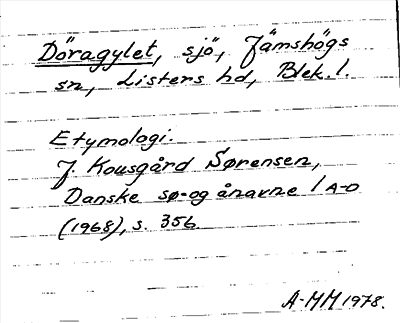 Döragylet, sjö, Jämshögs
sn, Listers hd, Blek. l.
Etymologi.
J. Kousgård Sørensen,
Danske sø- og ånavne 1 A-D
(1968), s. 356.
A-MM 1978.